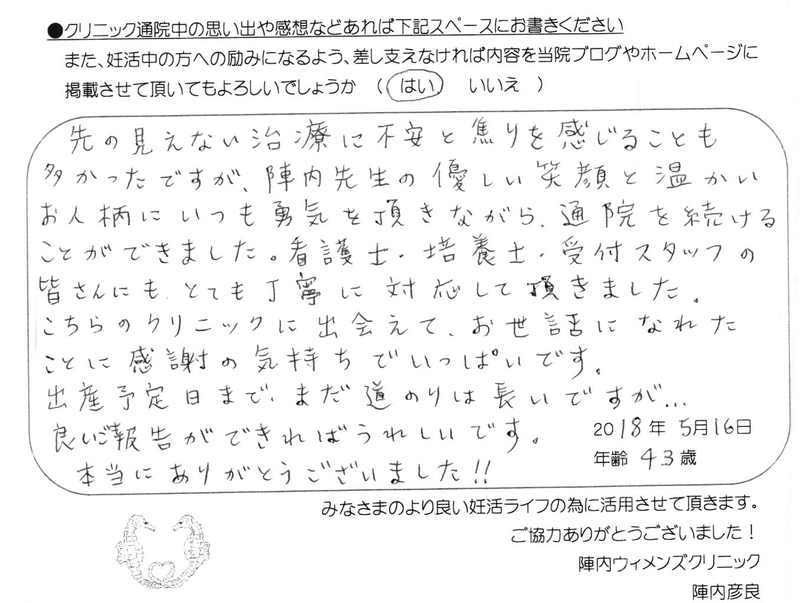 ●クリニック通院中の思い出や感想などあれば下記スペースにお書きください
また、妊活中の方への励みになるよう、差し支えなければ内容を当院ブログやホームページに
掲載させて頂いてもよろしいでしょうか （ はい いいえ ）
先の見えない治療に不安と焦りを感じることも
多かったですが、陣内先生の優しい笑顔と温かい
お人柄にいつも勇気を頂きながら、通院を続ける
ことができました。看護士・培養士・受付スタッフの
皆さんにも、とても丁寧に対応して頂きました。
こちらのクリニックに出会えて、お世話になれた
ことに感謝の気持ちでいっぱいです。
出産予定日まで、まだ道のりは長いですが…
良いご報告ができればうれしいです。
本当にありがとうございました!!
2018年 5月16日
年齢 43歳
みなさまのより良い妊活ライフの為に活用させて頂きます。
ご協力ありがとうございました！
陣内ウィメンズクリニック
陣内彦良